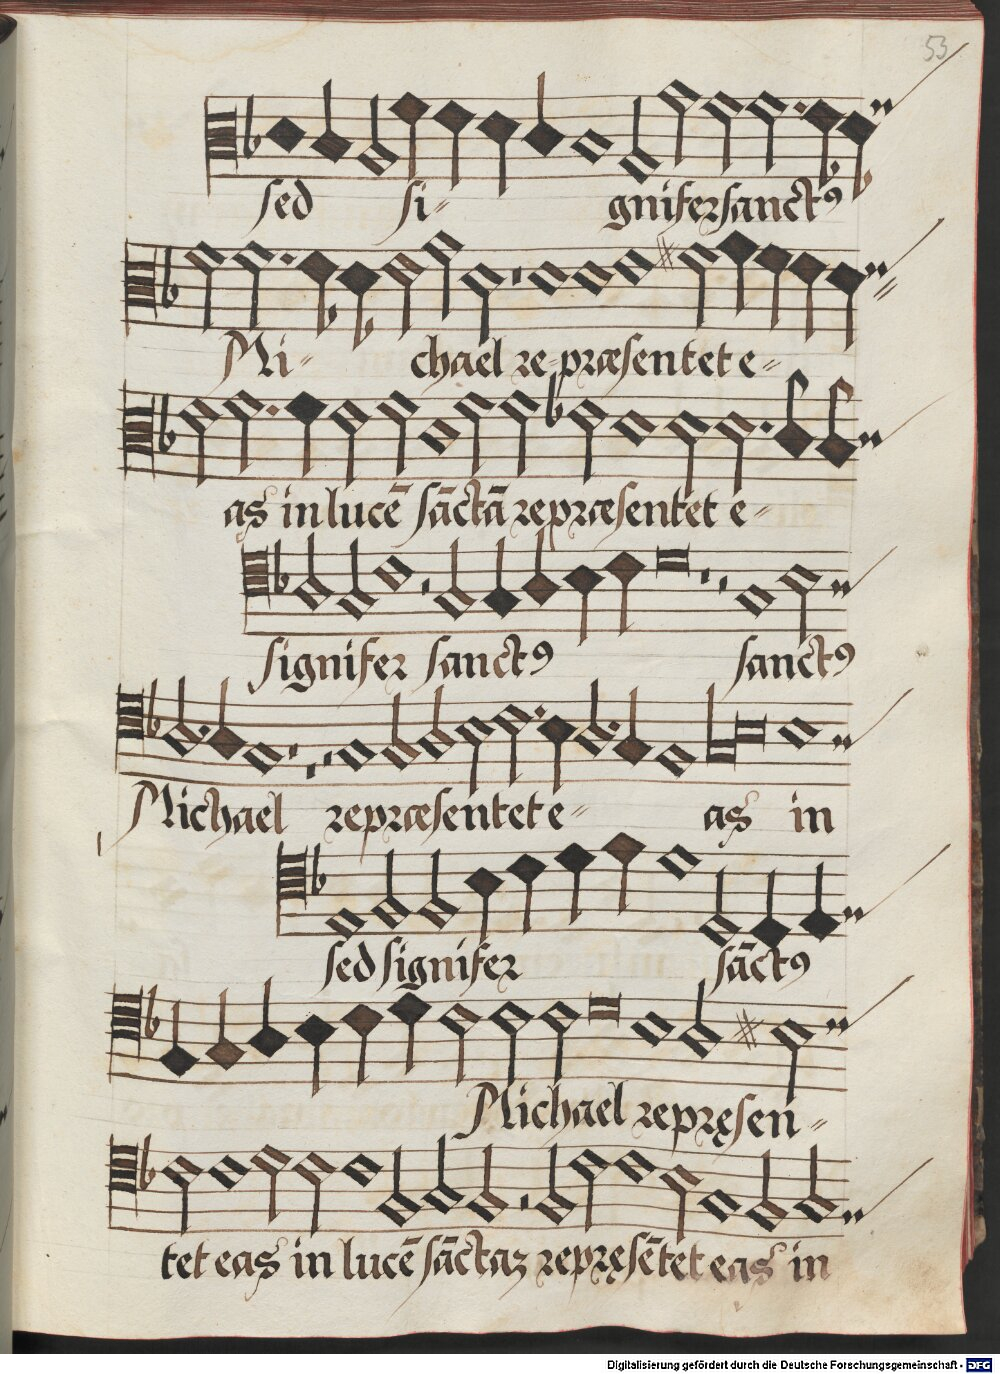 53
sed si- gnifer sanctꝰ
Mi- chael re-præsentet e-
as in lucē sāctā repræsentet e-
signifer sanctꝰ sanctꝰ
Michael repræsentet e- as in
sed signifer sāctꝰ
Michael repręsen-
tet eas in lucē sāctaz repręsētet eas in
Digitalisierung gefördert durch die Deutsche Forschungsgemeinschaft - DFG